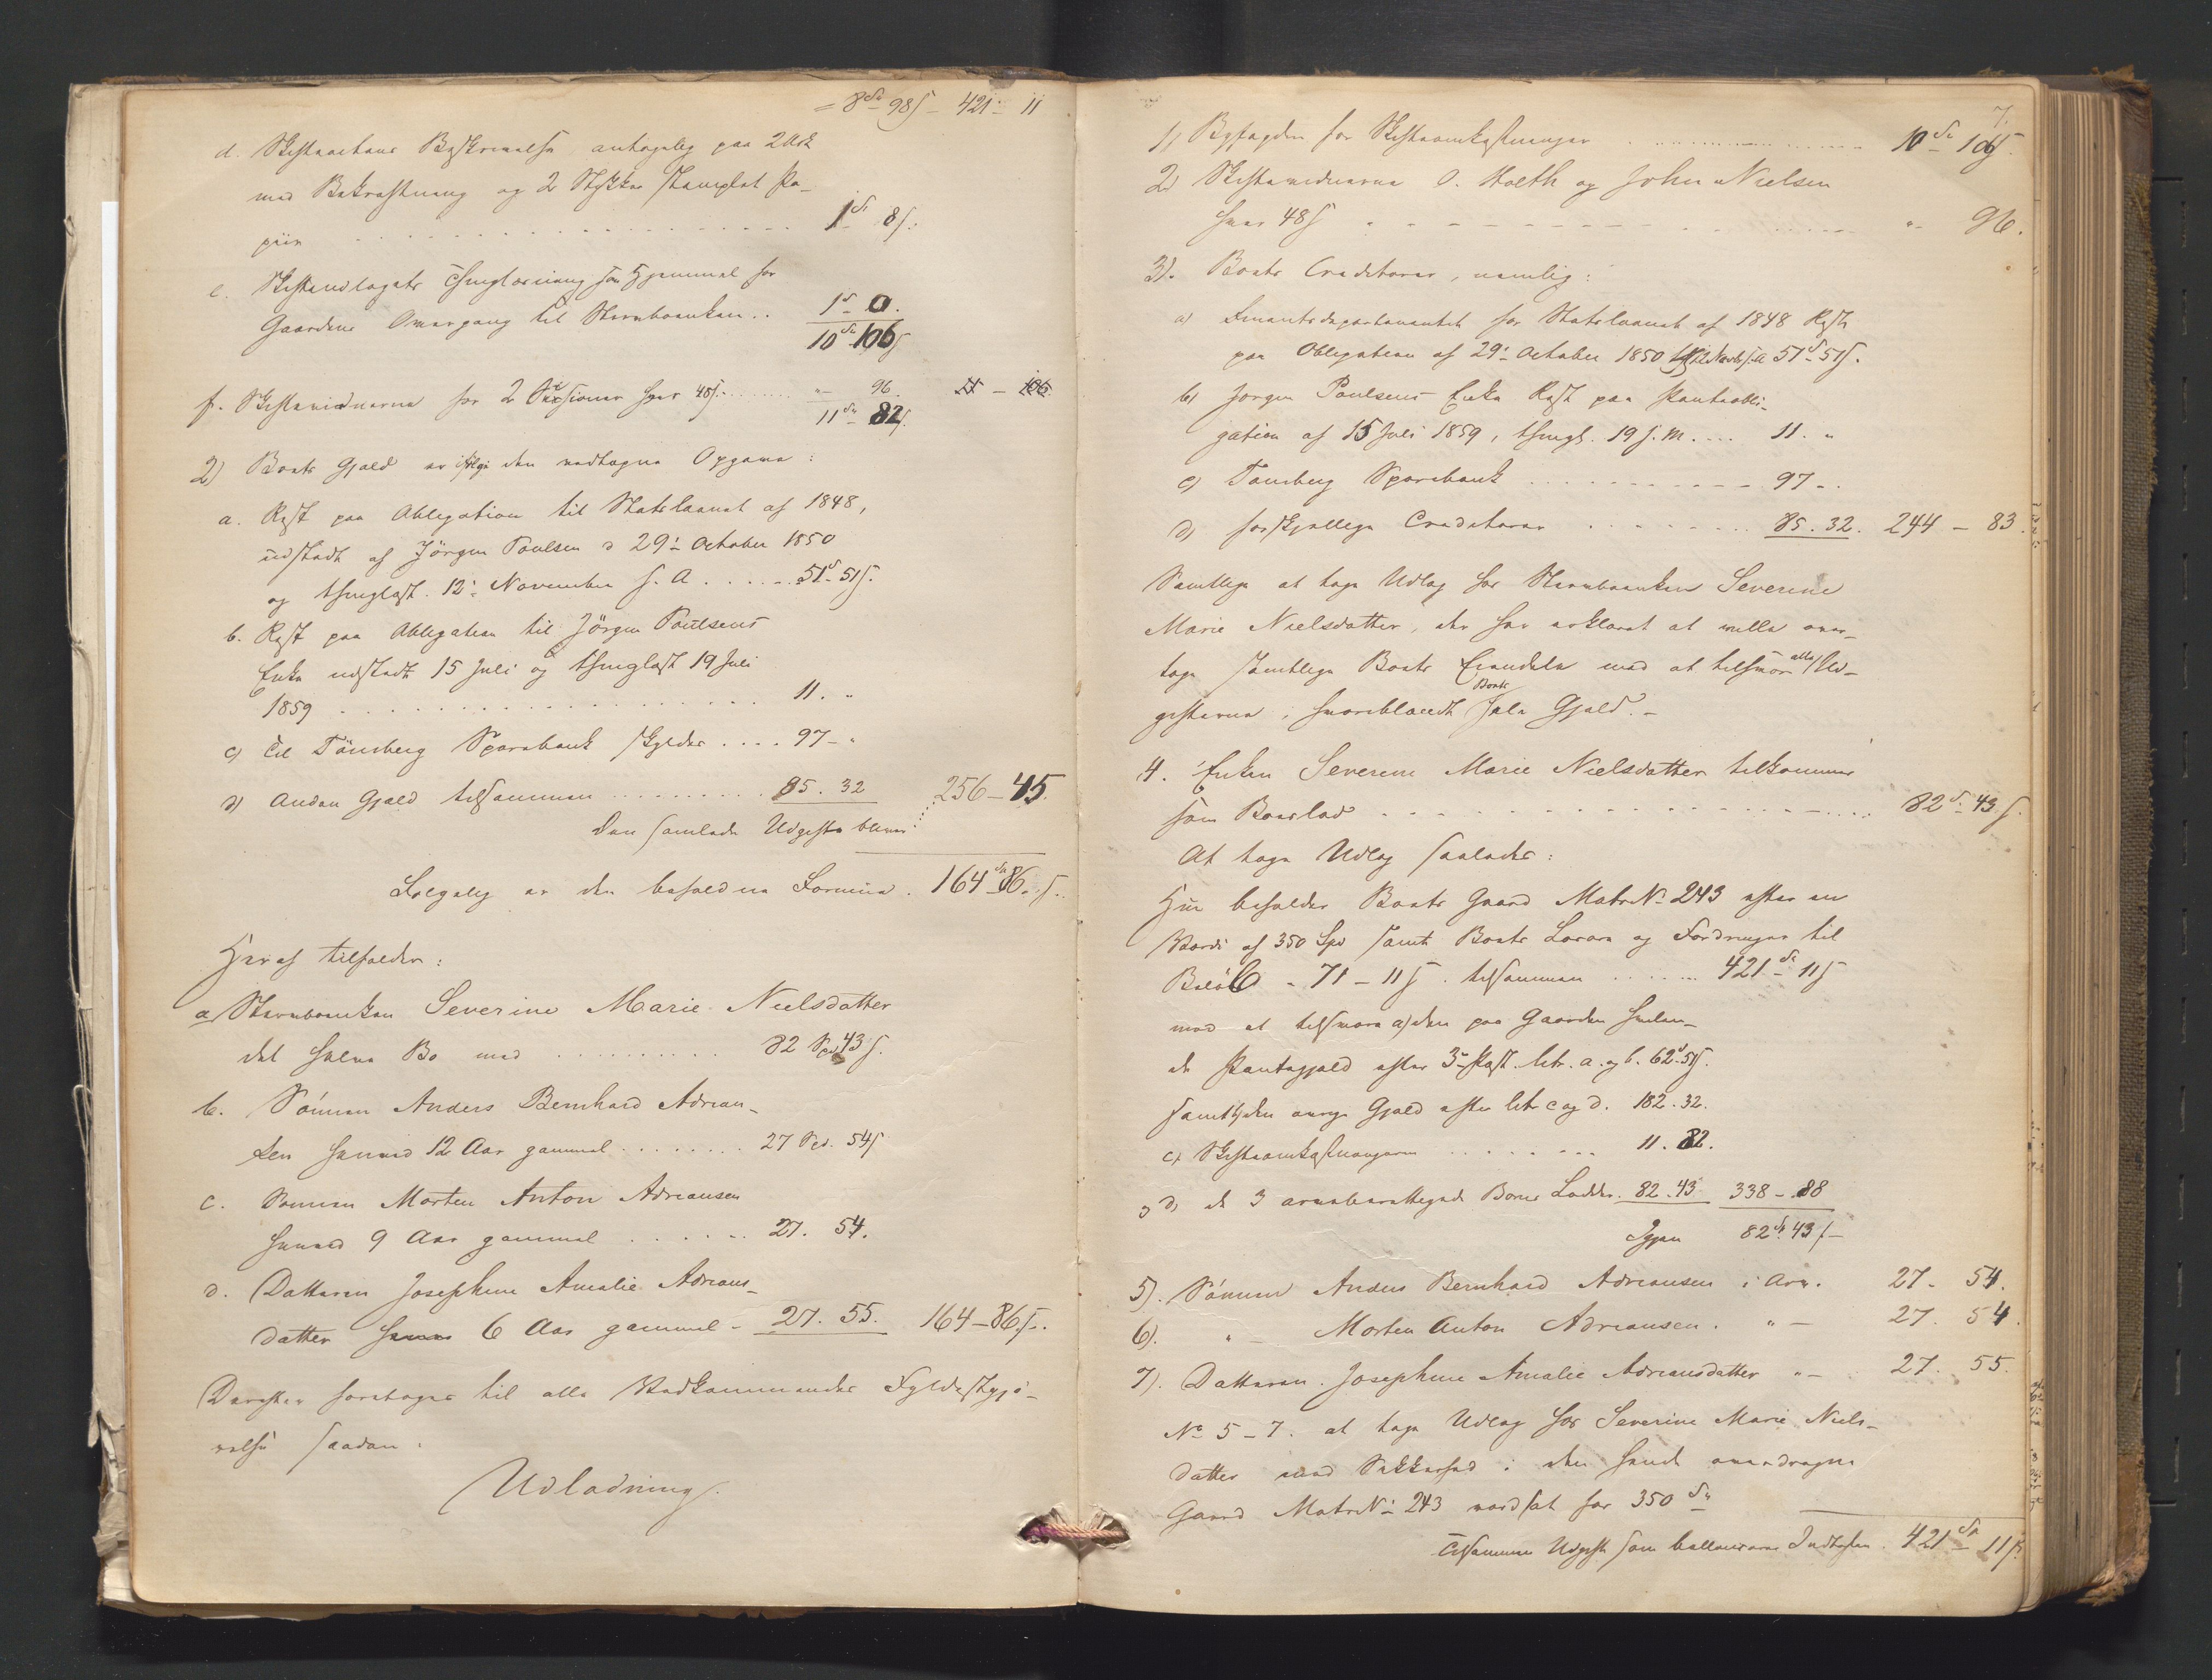 = 8 Sp 98 s – 421 – 11
d. Skifteactens Beskrivelse antagelig paa 2 Ark
med Bekræftning og 2 Stykker stemplet Pa-
piir . . . . . 1 Sp 8 s.
e. Skifteudlægets Thinglæsning som Hjemmel for
Gaardens Overgang til Stervboenken .. 1 Sp 0.
10 Sp 106 s
f. Skiftevidnerne for 2 Sessioner hver 48 s. . . . . " – 96.
11 Sp 82 s.
2) Boets Gjæld er ifølge den vedtagne Opgave :
a. Rest paa Obligation til Statslaanet af 1848,
udstedt af Jörgen Poulsen d 29de October 1850
og thinglæst 12te November s. A . . . . . 51 Sp 51 s.
b. Rest paa Obligation til Jörgen Poulsens
Enke udstedt 15 Juli og thinglæst 19 Juli
1859 . . . . . 11. "
c) Til Tönsberg Sparebank skyldes . . . . 97 – "
d) Anden Gjæld tilsammen . . . . . 85. 32 256 – 45.
Den samlede Udgift bliver
Følgelig er den beholdne Formue . 164 Sp 86 s.
Heraf tilfalder :
a Stervboenken Severine Marie Nielsdatter
det halve Bo med . . . . . 82 Spd 43 s.
b. Sönnen Anders Bernhard Adrian-
sen henved 12 Aar gammel . . . . . 27 Spd. 54 s
c. Sönnen Morten Anton Adriansen
henved 9 Aar gammel . . . . . 27. 54.
d. Datteren Josephine Amalie Adrians-
datter 6 Aar gammel – 27. 55. 164 – 86 s.
Derefter foretages til alle Vedkommendes Fyldestgjö-
relse saadan :
Udlodning.
7.
1) Byfogden for Skifteomkostninger . . . . . 10 Sp 106 s.
2) Skiftevidnerne O. Holth og John Nielsen
hver 48 s . . . . . " – 96.
3). Boets Creditorer, nemlig :
a) Finantsdepartementet for Statslaanet af 1848 Rest
paa Obligation af 29de October 1850 51 Sp 51 s.
b) Jörgen Poulsens Enke Rest paa Panteobli-
gation af 15 Juli 1859, thingl. 19 s. M. . . . 11. "
c) Tönsberg Sparebank . . . . . 97 – .
d) forskjellige Creditorer . . . . . 85. 32. 244 – 83.
Samtlige at tage Udlæg hos Stervboenken Severine
Marie Nielsdatter, der har erklæret at ville over-
tage samtlige Boets Eiendele mod at tilsvare alle Ud-
gifterne, hvoriblandt Boets hele Gjæld. –
4. Enken Severine Marie Nielsdatter tilkommer
som Boeslod . . . . . 82 Sp 43 s.
At tage Udlæg saaledes :
Hun beholder Boets Gaard Matr. No 243 efter en
Værdi af 350 Spd samt Boets Lösöre og Fordringer til
Belöb – 71 – 11 s. tilsammen . . . . . 421 Sp 11 s
mod at tilsvare a) den paa Gaarden hvilen-
de Pantegjæld efter 3die Post. litr. a. og b. 62 Sp 51 s.
samt b) den övrige Gjæld efter litr c og d. 182. 32.
c) Skifteomkostningerne . . . . . 11. 82.
og d) de 3 arveberettigede Börns Lodder. 82. 43. 338 – 88
Igjen 82 Sp 43 s –
5). Sönnen Anders Bernhard Adriansen i Arv. 27 – 54.
6). " – Morten Anton Adriansen. " – 27. 54.
7). Datteren. Josephine Amalie Adriansdatter " – 27. 55.
No 5 – 7. at tage Udlæg hos Severine Marie Niels-
datter med Sikkerhed i den hende overdragne
Gaard Matr. No 243 værdsat for 350 Sp
Tilsammen Udgift som ballancerer Indtægten . 421 Sp 11 s.